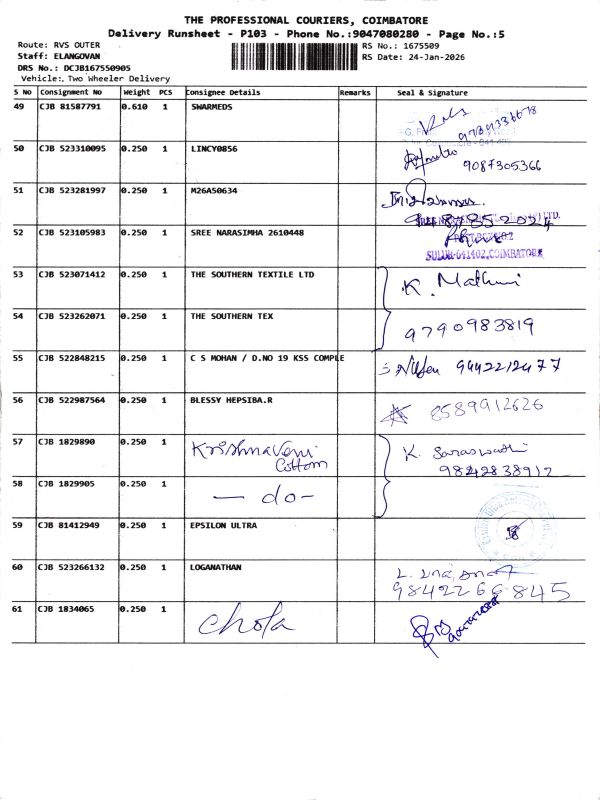 THE PROFESSIONAL COURIERS, COIMBATORE
Delivery Runsheet - P103 - Phone No.:9047080280 - Page No.:5
Route: RVS OUTER
RS No.: 1675509
Staff: ELANGOVAN
RS Date: 24-Jan-2026
DRS No.: DCJB167550905
Vehicle:. Two Wheeler Delivery
S No Consignment No Weight PCS Consignee Details Remarks Seal & Signature
49 CJB 81587791 0.610 1 SWARMEDS
50 CJB 523310095 0.250 1 LINCY0856 9087305366
51 CJB 523281997 0.250 1 M26A50634
52 CJB 523105983 0.250 1 SREE NARASIMHA 2610448
SULUR-641402, COIMBATORE
53 CJB 523071412 0.250 1 THE SOUTHERN TEXTILE LTD K. Mathuri
54 CJB 523262071 0.250 1 THE SOUTHERN TEX 9790983819
55 CJB 522848215 0.250 1 C S MOHAN / D.NO 19 KSS COMPLE 9442212477
56 CJB 522987564 0.250 1 BLESSY HEPSIBA.R 8589912626
57 CJB 1829890 0.250 1 Krishnaveni Cottom K. Saraswathi
9842838912
58 CJB 1829905 0.250 1 - do -
59 CJB 81412949 0.250 1 EPSILON ULTRA
60 CJB 523266132 0.250 1 LOGANATHAN
9842266845
61 CJB 1834065 0.250 1 Chola